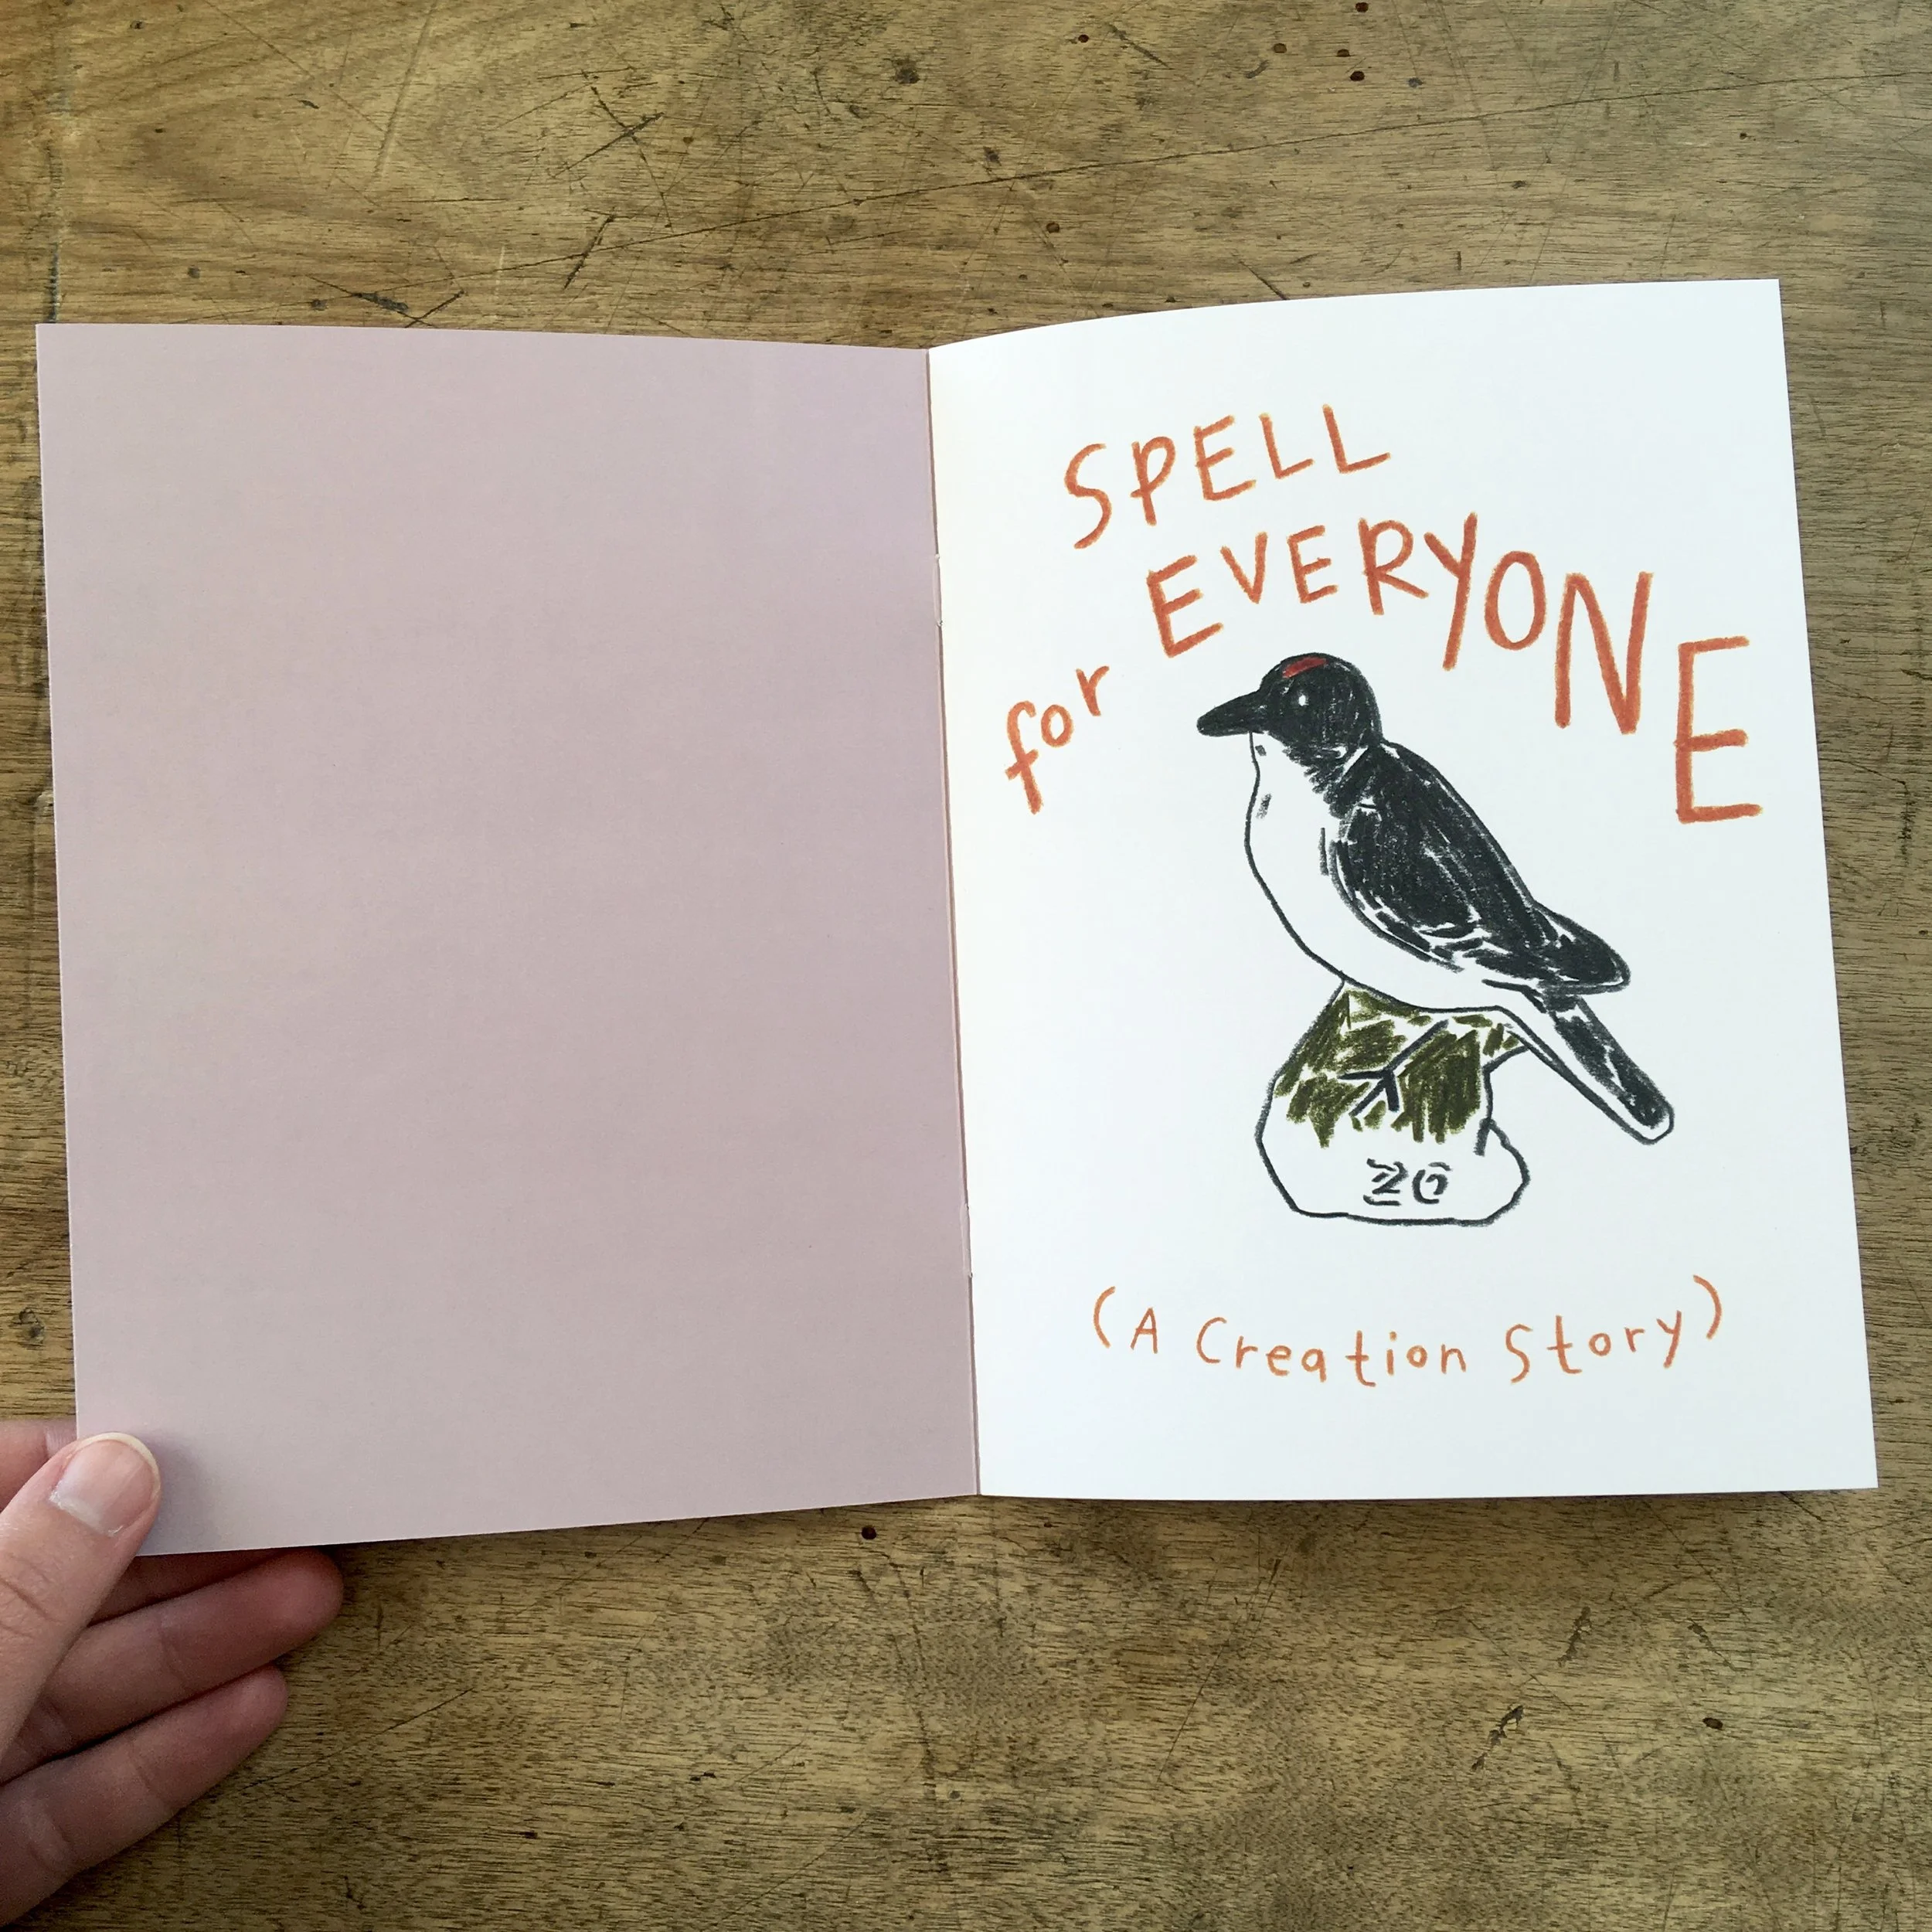 SPELL
for EVERYONE
26
(A Creation Story)